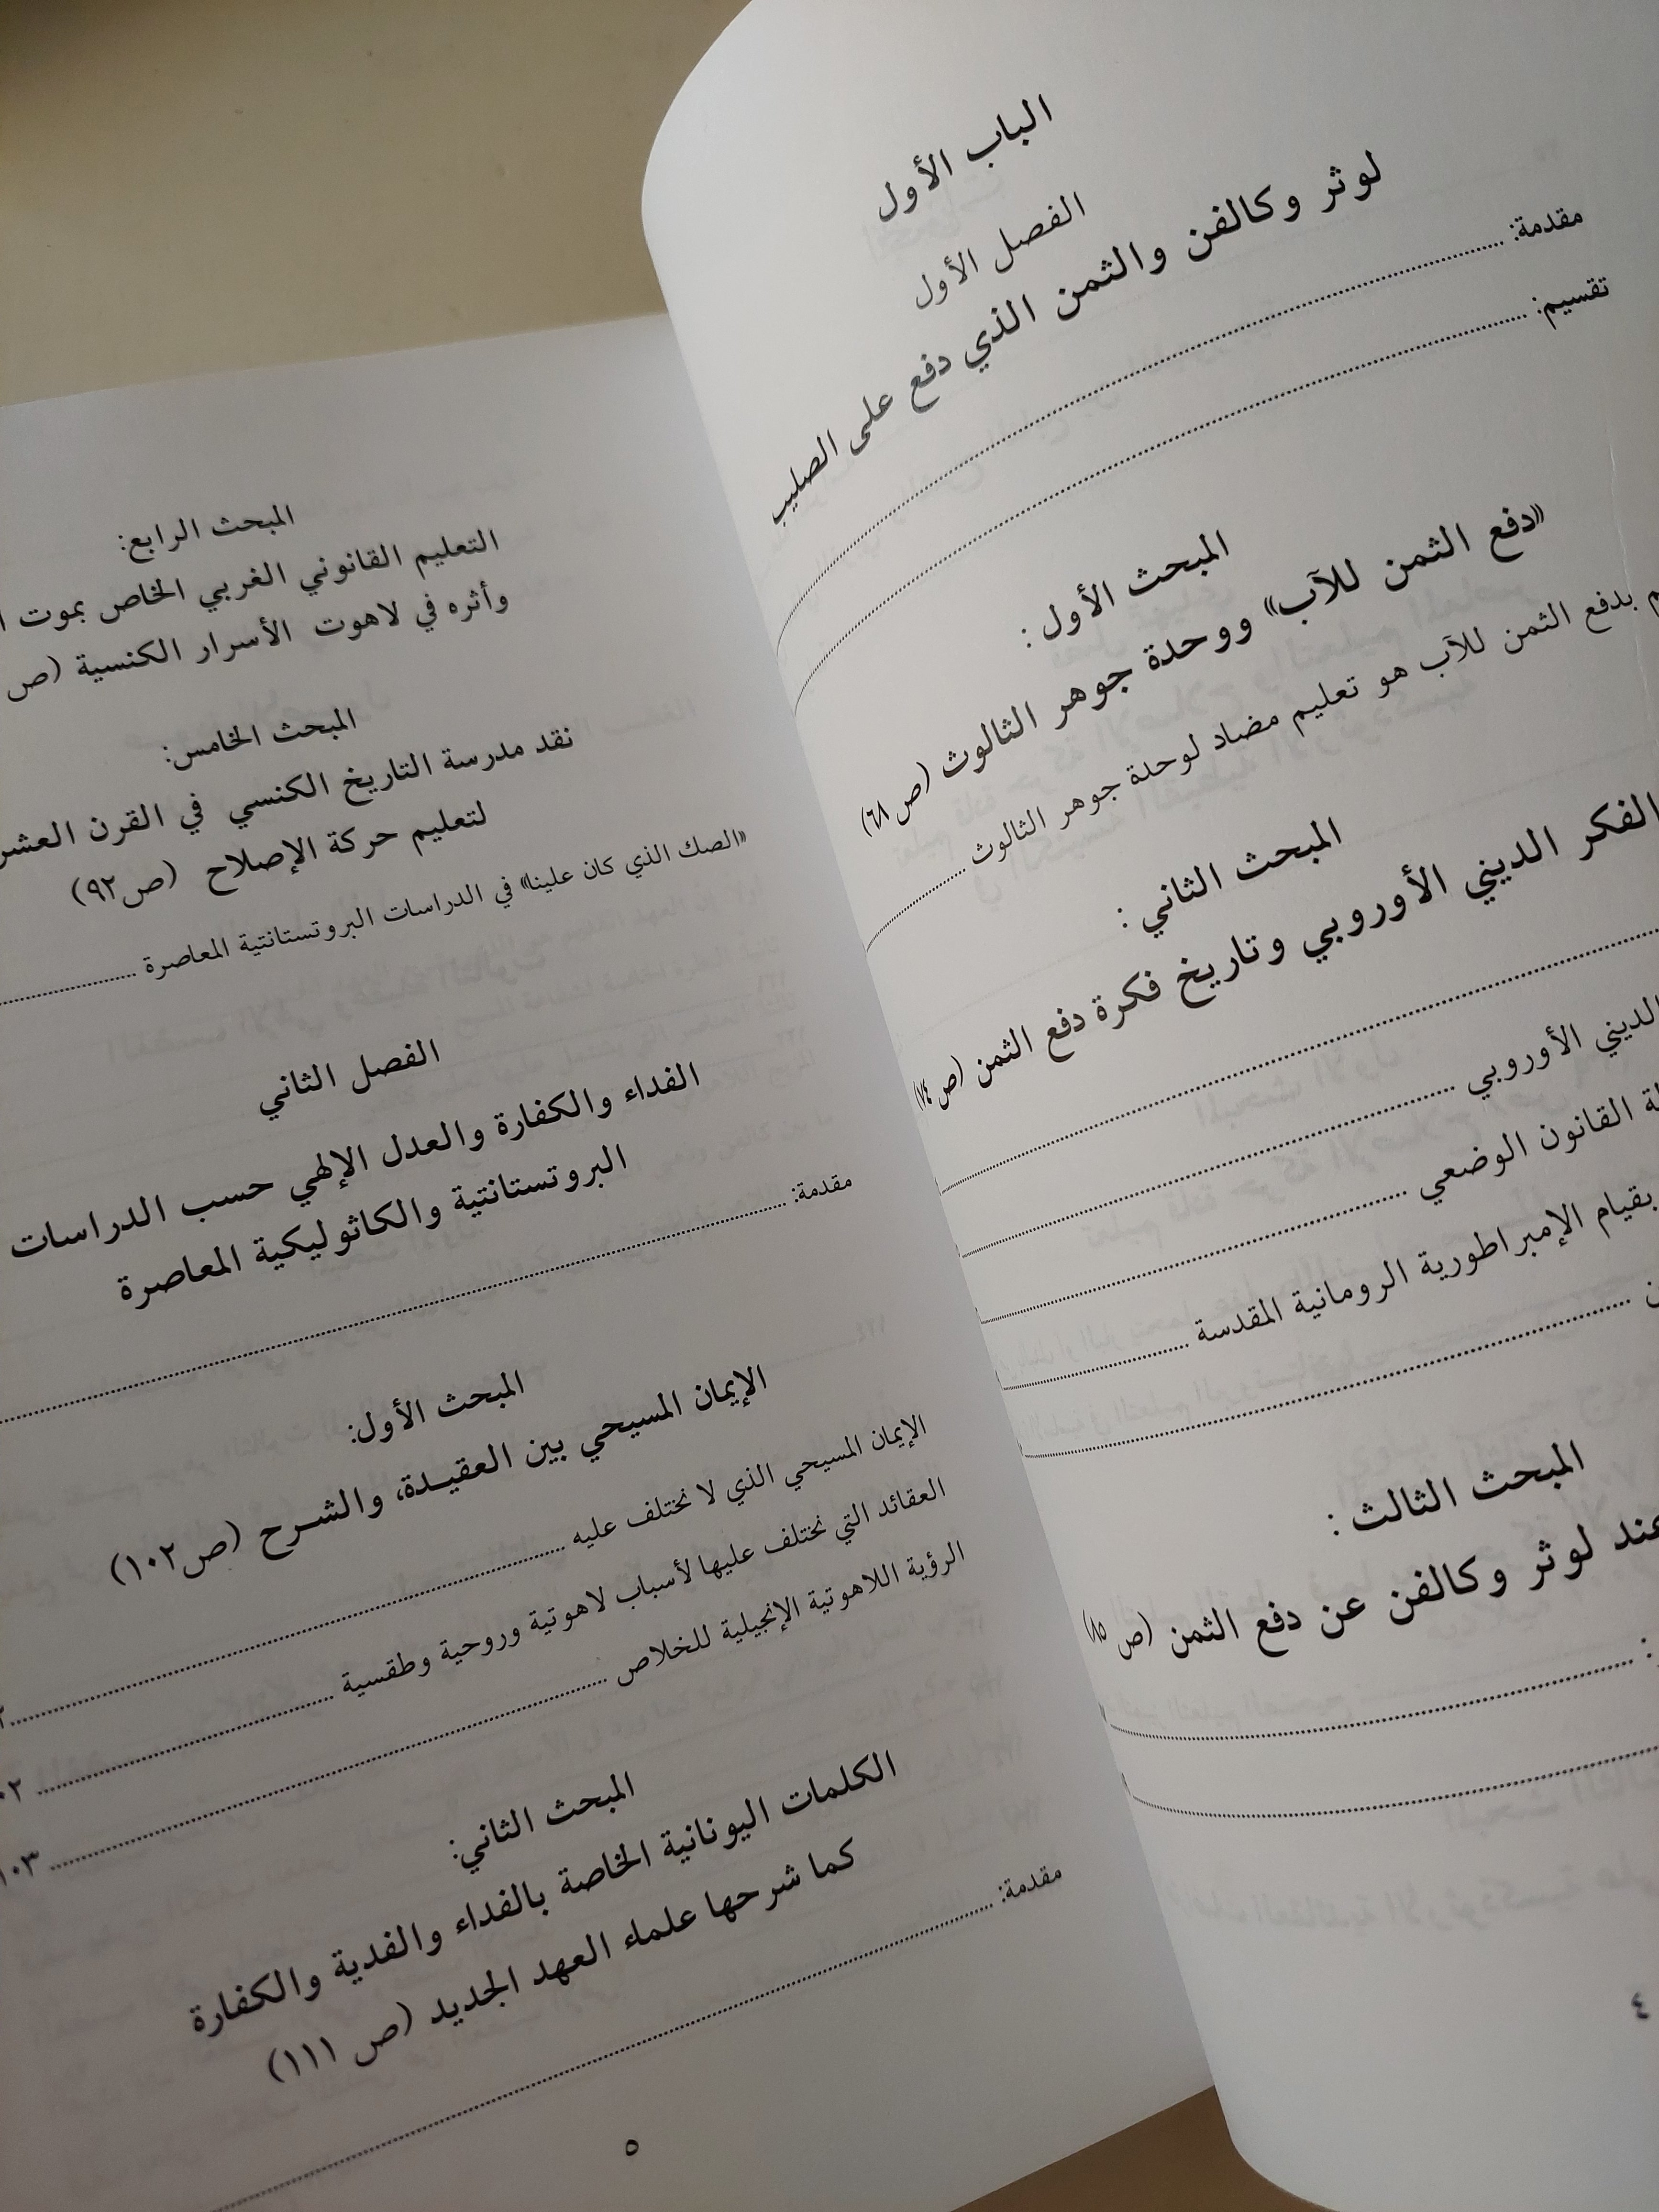 الباب الأول
الفصل الأول
لوثر وكالفن والثمن الذي دفع على الصليب
مقدمة:
تقسيم:
المبحث الأول :
«دفع الثمن للآب» ووحدة جوهر الثالوث (ص ٦٨)
بدفع الثمن للآب هو تعليم مضاد لوحدة جوهر الثالوث
المبحث الثاني :
الفكر الديني الأوروبي وتاريخ فكرة دفع الثمن (ص ٧٤)
الديني الأوروبي
القانون الوضعي
بقيام الإمبراطورية الرومانية المقدسة
المبحث الثالث :
عند لوثر وكالفن عن دفع الثمن (ص ٨٥)
٤
المبحث الرابع:
التعليم القانوني الغربي الخاص بموت
وأثره في لاهوت الأسرار الكنسية (ص
المبحث الخامس:
نقد مدرسة التاريخ الكنسي في القرن
لتعليم حركة الإصلاح (ص٩٢)
«الصك الذي كان علينا» في الدراسات البروتستانتية المعاصرة
الفصل الثاني
الفداء والكفارة والعدل الإلهي حسب الدراسات
البروتستانتية والكاثوليكية المعاصرة
مقدمة:
المبحث الأول:
الإيمان المسيحي بين العقيـدة، والشـرح (ص١٠٢)
الإيمان المسيحي الذي لا نختلف عليه
العقائد التي نختلف عليها لأسباب لاهوتية وروحية وطقسية
الرؤية اللاهوتية الإنجيلية للخلاص ١٠٣
المبحث الثاني:
الكلمات اليونانية الخاصة بالفداء والفدية والكفارة
كما شرحها علماء العهد الجديد (ص ١١١)
مقدمة:
٥